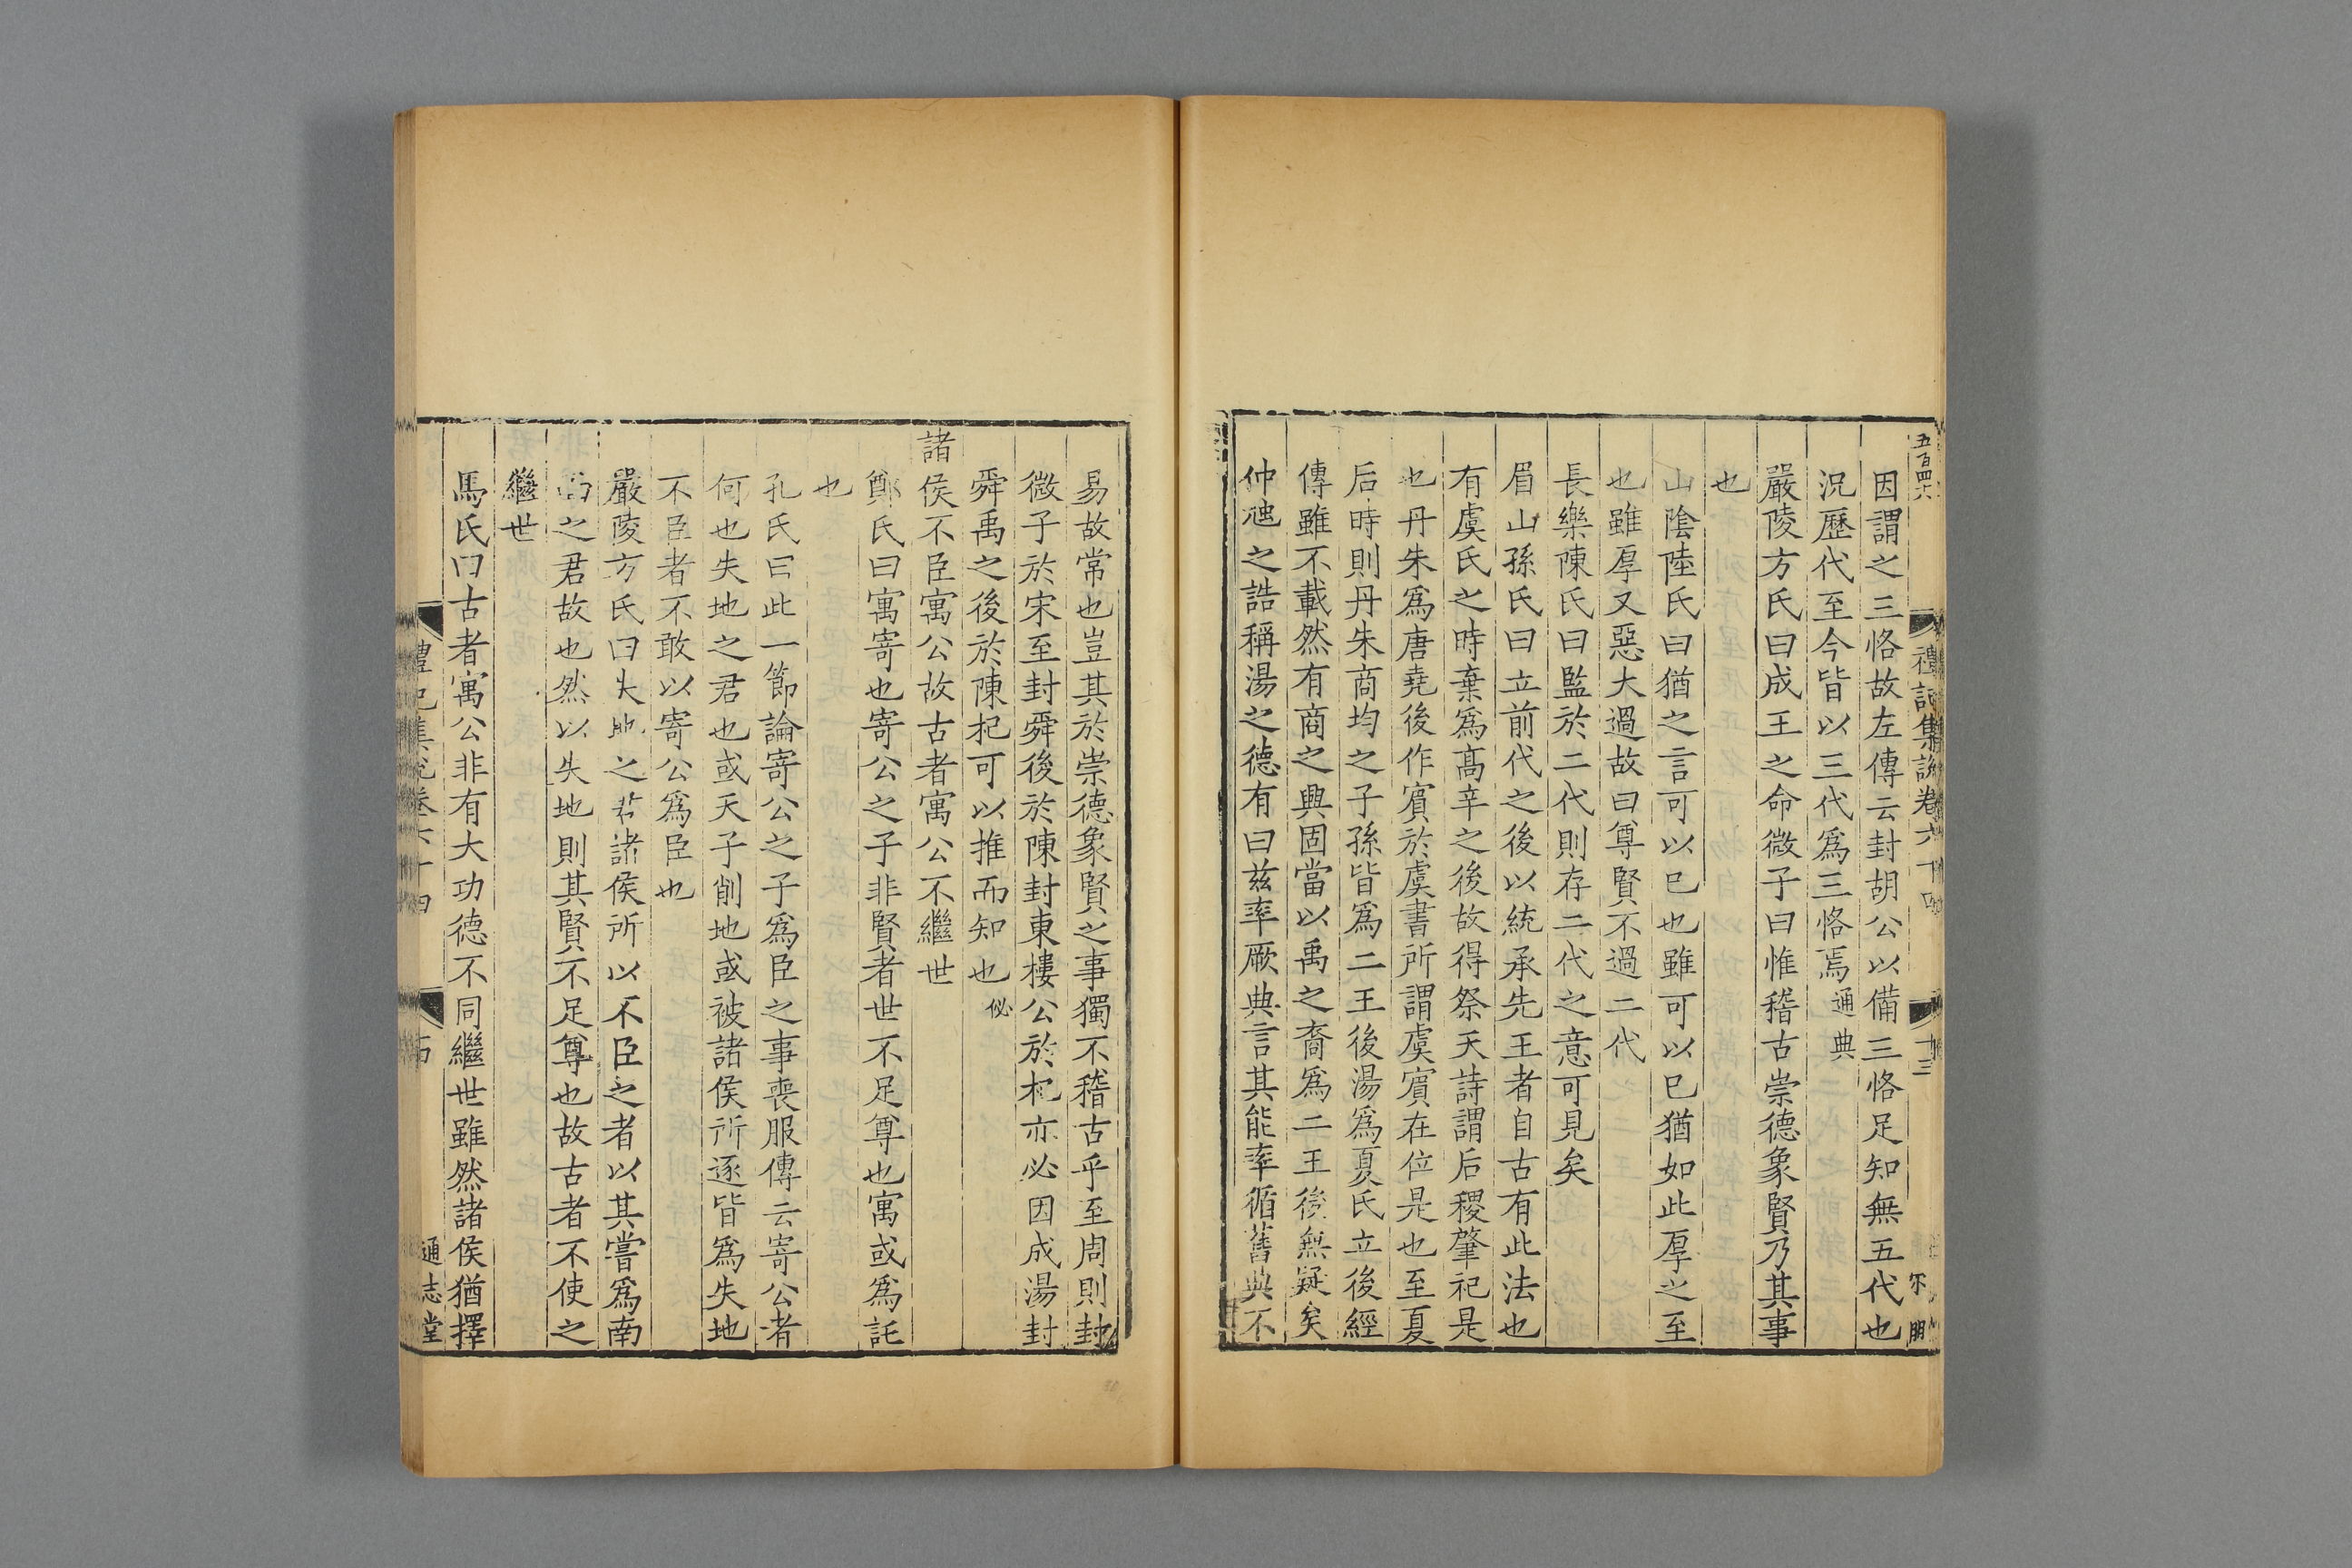 五百四六
禮記集說卷六十四
十三
因謂之三恪故左傳云封胡公以備三恪足知無五代也
況歷代至今皆以三代爲三恪焉通典
嚴陵方氏曰成王之命微子曰惟稽古崇德象賢乃其事
也
山陰陸氏曰猶之言可以已也雖可以已猶如此厚之至
也雖厚又惡大過故曰尊賢不過二代
長樂陳氏曰監於二代則存二代之意可見矣
眉山孫氏曰立前代之後以統承先王者自古有此法也
有虞氏之時棄爲高辛之後故得祭天詩謂后稷肇祀是
也丹朱爲唐堯後作賓於虞書所謂虞賓在位是也至夏
后時則丹朱商均之子孫皆爲二王後湯爲夏氏立後經
傳雖不載然有商之興固當以禹之裔爲二王後無疑矣
仲虺之誥稱湯之德有曰兹率厥典言其能率循舊典不
易故常也豈其於崇德象賢之事獨不稽古乎至周則封
微子於宋至封舜後於陳封東樓公於杞亦必因成湯封
舜禹之後於陳杞可以推而知也
諸侯不臣寓公故古者寓公不繼世
鄭氏曰寓寄也寄公之子非賢者世不足尊也寓或爲託
也
孔氏曰此一節論寄公之子爲臣之事喪服傳云寄公者
何也失地之君也或天子削地或被諸侯所逐皆爲失地
不臣者不敢以寄公爲臣也
嚴陵方氏曰失地之君諸侯所以不臣之者以其嘗爲南
面之君故也然以失地則其賢不足尊也故古者不使之
繼世
馬氏曰古者寓公非有大功德不同繼世雖然諸侯猶擇
禮記集說卷六十四
通志堂